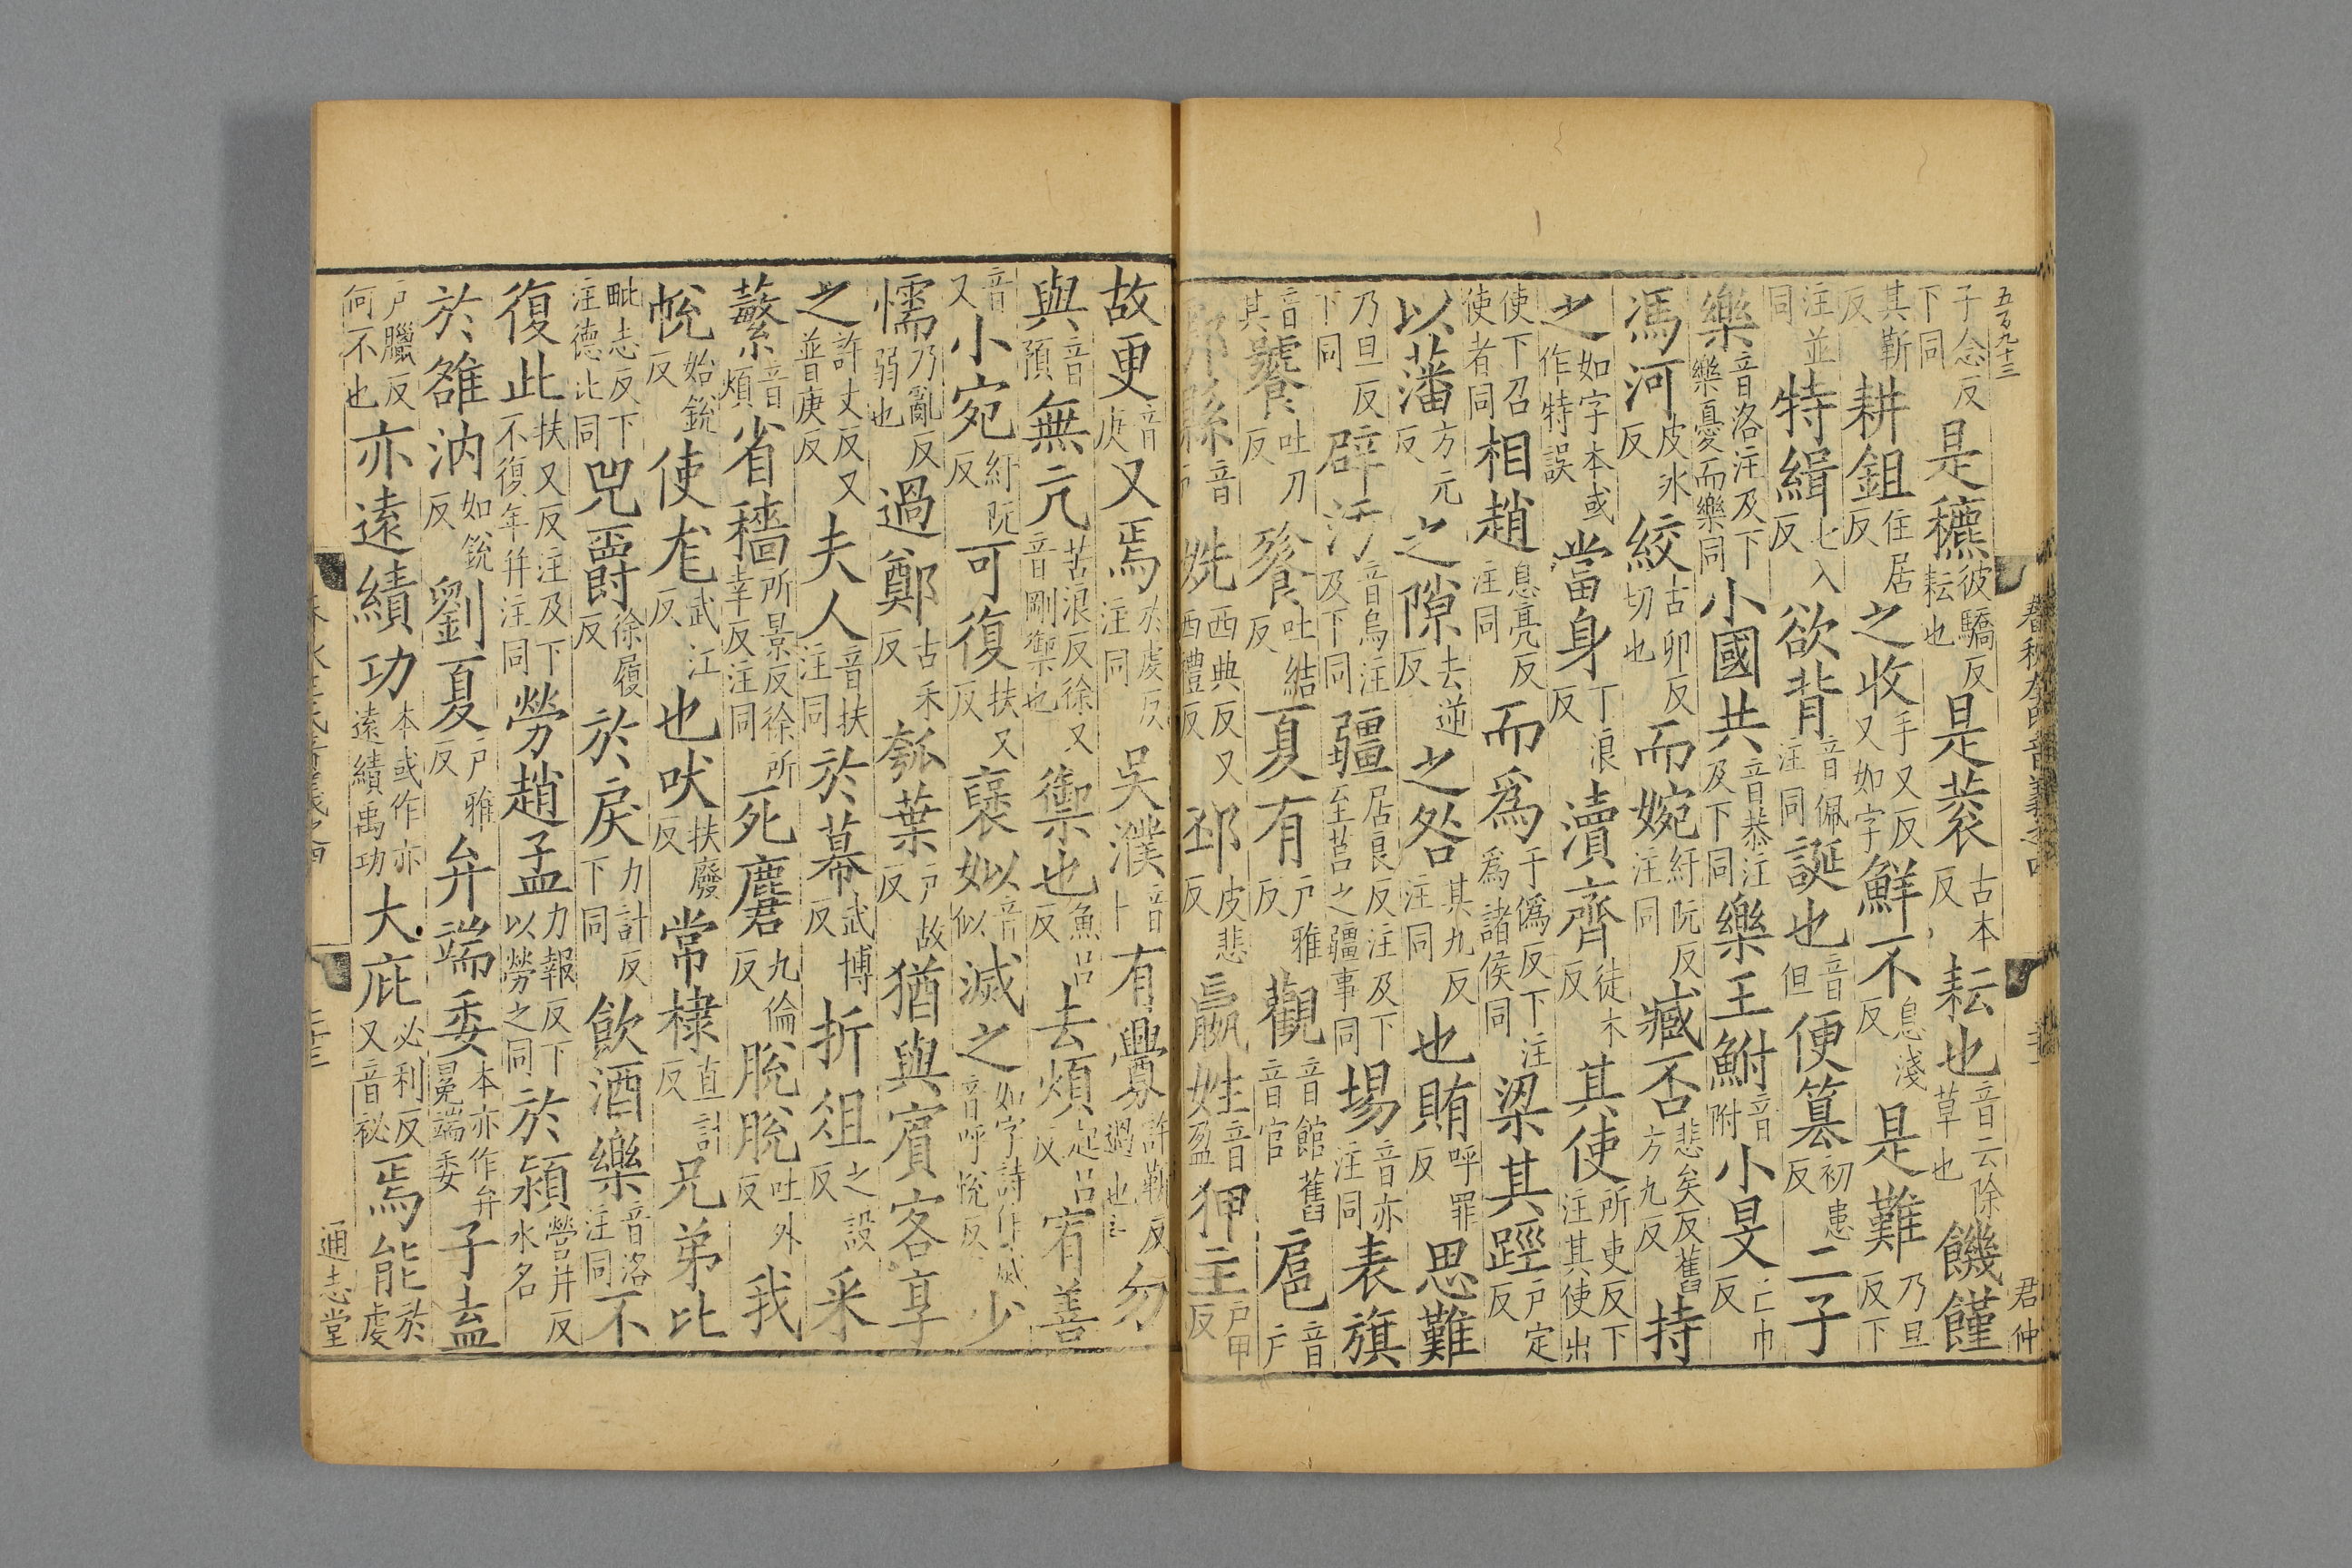 五百九十三
春秋左氏音義之四
君仲
子念反下同是穮彼驕反耘也是蓘古本反耘也音云除草也饑饉
其靳反耕鉏仕居反之收手又反又如字鮮不息淺反是難乃旦反下
注並同特緝七入反欲背音佩注同誕也音但便篡初患反二子
樂音洛注及下樂憂而樂同小國共音恭注及下同樂王鮒音附小旻亡巾反
馮河皮冰反絞古卯反切也而婉紆阮反注同臧否悲矣反舊方九反持
之如字本或作特誤當身丁浪反瀆齊徒木反其使所吏反下注其使出
使下召使者同相趙息亮反注同而爲于僞反下注爲諸侯同梁其踁戶定反
以藩方元反之隙去逆反之咎其九反注同也賄呼罪反思難
乃旦反下同辟污音烏注及下同疆居良反注及下至莒之疆事同埸音亦注同表旗
音其饕吐刀反餮吐結反夏有戶雅反觀音館舊音官扈音戶
鄠縣音戶姺西典反又西禮反邳皮悲反嬴姓音盈狎主戶甲反
故更音庚又焉於虔反注同吳濮音卜有釁許靳反過也勿
與音預無亢苦浪反徐又音剛禦也禦也魚呂反去煩起呂反宥善
音又小宛紆阮反可復扶又反襃姒音似滅之如字詩作烕音呼悅反少
懦乃亂反弱也過鄭古禾反瓠葉戶故反猶與賓客享
之許丈反又普庚反夫人音扶注同於幕武博反折俎之設反采
蘩音煩省穡所景反徐所幸反注同死麕九倫反脫脫吐外反我
帨始銳反使尨武江反也吠扶廢反常棣直計反兄弟比
毗志反下注德比同兕爵徐履反於戾力計反下同飲酒樂音洛注同不
復此扶又反注及下不復年幷注同勞趙孟力報反下以勞之同於潁營井反水名
於雒汭如銳反劉夏戶雅反弁端委本亦作弁冕端委子盍
戶臘反何不也亦遠績功本或作亦遠績禹功大庇必利反又音祕焉能於虔
通志堂